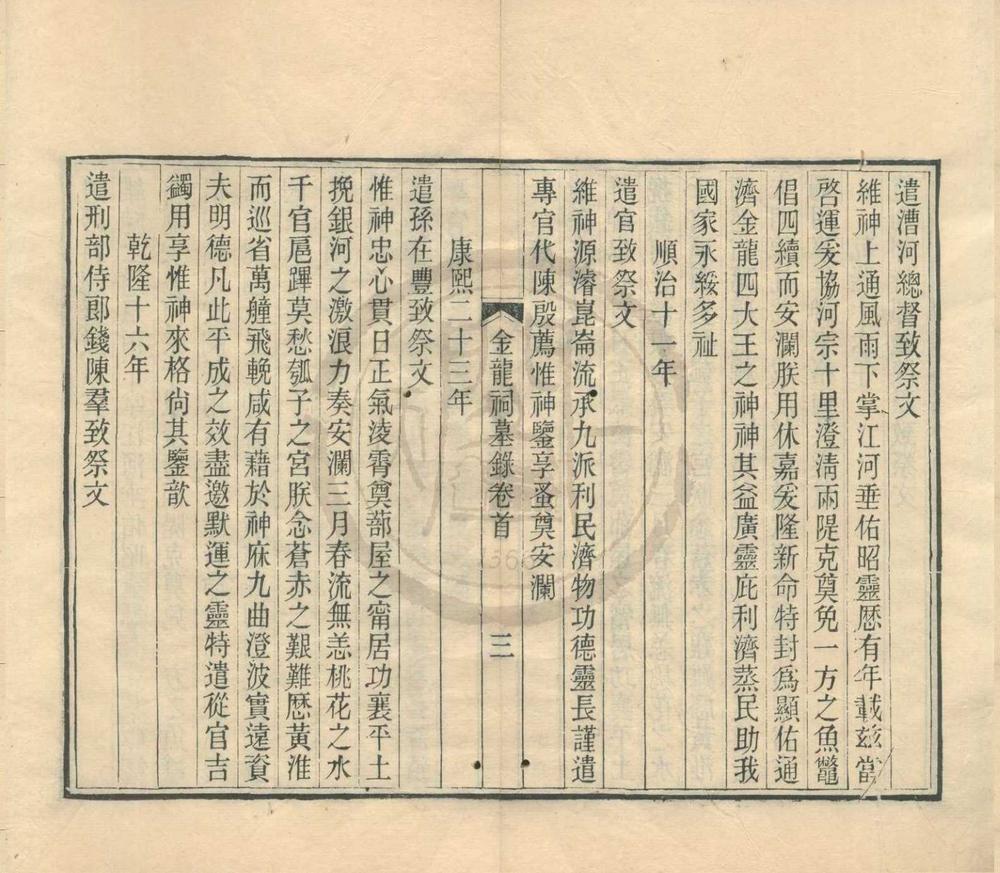 遣漕河總督致祭文
維神上通風雨下掌江河垂佑昭靈歷有年載兹當
啓運爰協河宗十里澄淸兩隄克奠免一方之魚鼈
倡四續而安瀾朕用休嘉爰隆新命特封爲顯佑通
濟金龍四大王之神神其益廣靈庇利濟蒸民助我
國家永綏多祉
順治十一年
遣官致祭文
維神源濬崑崙流承九派利民濟物功德靈長謹遣
專官代陳殷薦惟神鑒享蚤奠安瀾
金龍祠墓錄卷首
三
康熙二十三年
遣孫在豐致祭文
惟神忠心貫日正氣淩霄奠蔀屋之甯居功襄平土
挽銀河之激浪力奏安瀾三月春流無恙桃花之水
千官扈蹕莫愁瓠子之宮朕念蒼赤之艱難歷黃淮
而巡省萬艟飛輓咸有藉於神庥九曲澄波實遠資
夫明德凡此平成之效盡邀默運之靈特遣從官吉
蠲用享惟神來格尙其鑒歆
乾隆十六年
遣刑部侍郎錢陳羣致祭文